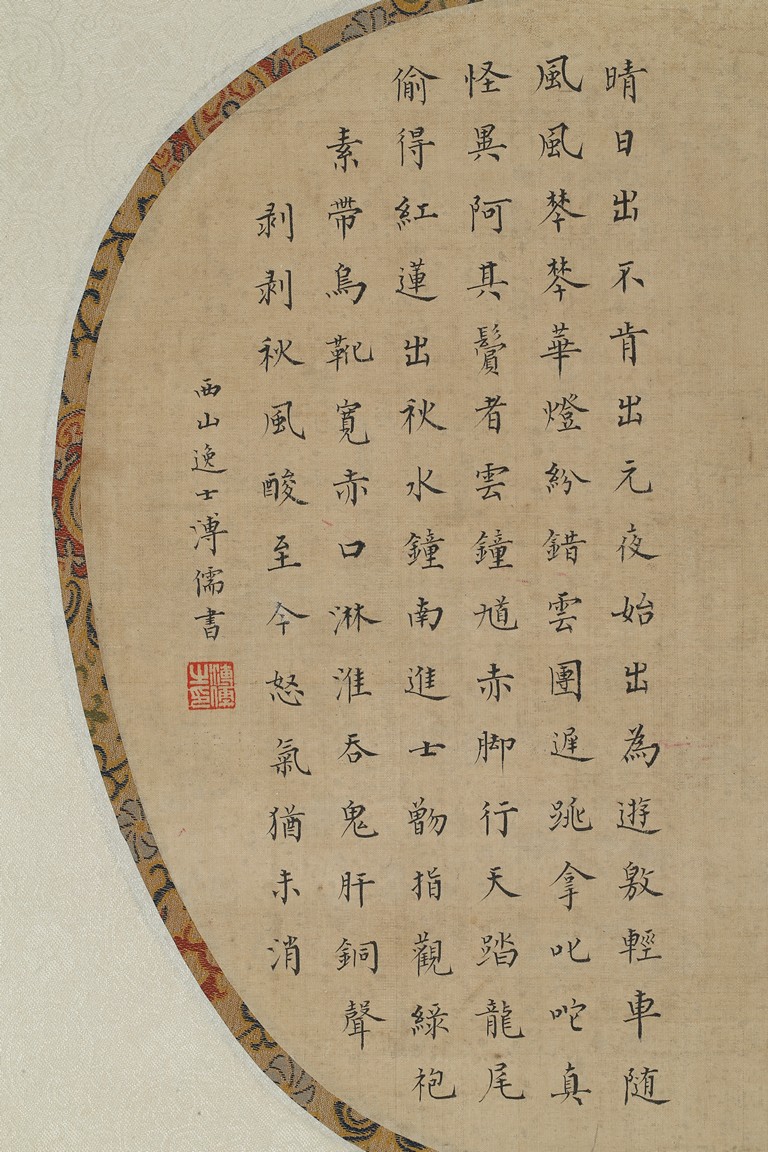 晴日出不肯出元夜始出為遊敖輕車隨
風風棽棽華燈紛錯雲團遲跳拿叱咤真
怪異阿其鬢者雲鐘馗赤脚行天踏龍尾
偷得紅蓮出秋水鐘南進士指觀綠袍
素帶烏靴寬赤口淋淮吞鬼肝銅聲
剥剥秋風酸至今怒氣猶未消
西山逸士溥儒書
溥儒之印